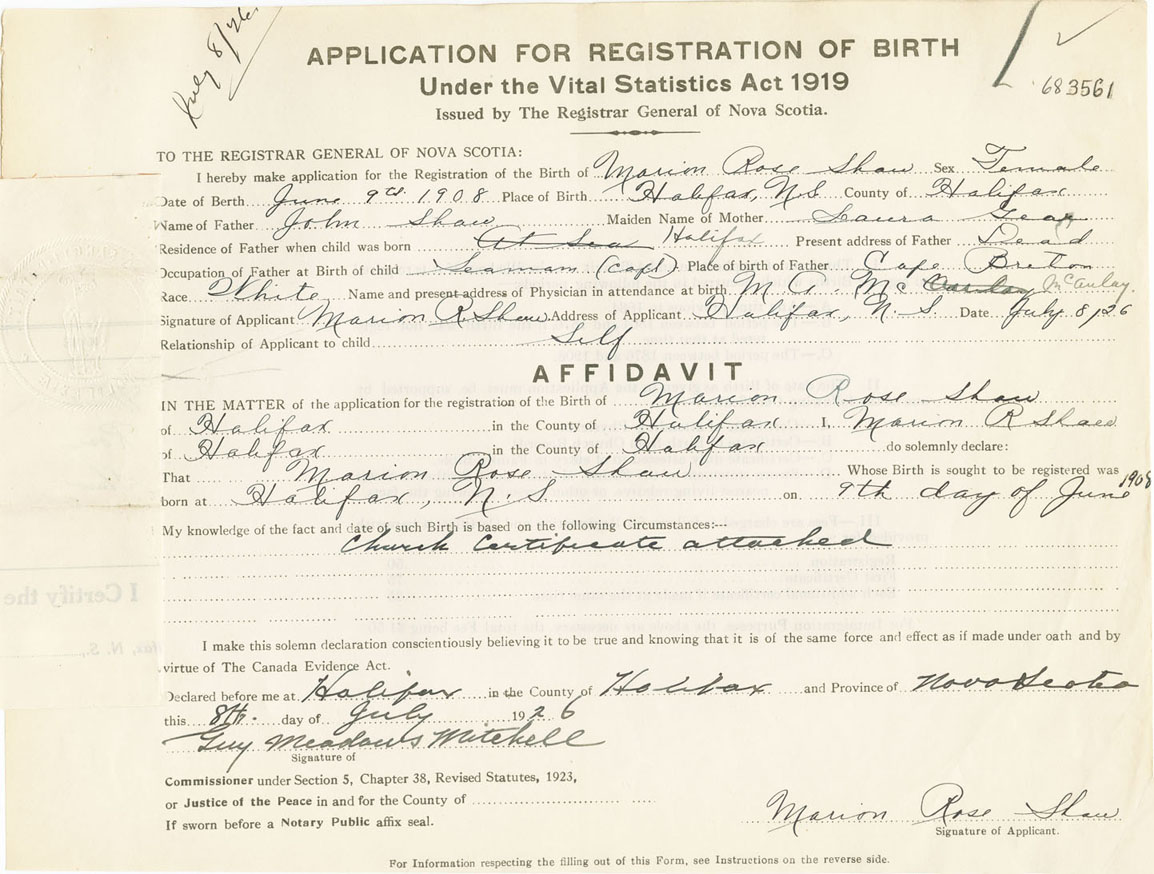 July 8/26
683561
APPLICATION FOR REGISTRATION OF BIRTH
Under the Vital Statistics Act 1919
Issued by The Registrar General of Nova Scotia.
TO THE REGISTRAR GENERAL OF NOVA SCOTIA:
I hereby make application for the Registration of the Birth of Marion Rose Shaw Sex Female
Date of Berth June 9th 1908 Place of Birth Halifax, N.S County of Halifax
Name of Father John Shaw Maiden Name of Mother Laura
Residence of Father when child was born At Sea Halifax Present address of Father Dead
Occupation of Father at Birth of child Seaman (capt) Place of birth of Father Cape Breton
Race White Name and present address of Physician in attendance at birth M A. Mc McAulay.
Signature of Applicant Marion R Shaw Address of Applicant Halifax, N. S. Date July 8/26
Relationship of Applicant to child Self
AFFIDAVIT
IN THE MATTER of the application for the registration of the Birth of Marion Rose Shaw
of Halifax in the County of Halifax I, Marion R Shaw
of Halifax in the County of Halifax do solemnly declare:
That Marion Rose Shaw Whose Birth is sought to be registered was
born at Halifax, N. S on 9th day of June 1908
My knowledge of the fact and date of such Birth is based on the following Circumstances:--
Church Certificate attached
I make this solemn declaration conscientiously believing it to be true and knowing that it is of the same force and effect as if made under oath and by
virtue of The Canada Evidence Act.
Declared before me at Halifax in the County of Halifax and Province of Nova Scotia
this 8th. day of July 1926
Guy Meadows Mitchell
Signature of
Commissioner under Section 5, Chapter 38, Revised Statutes, 1923,
or Justice of the Peace in and for the County of
If sworn before a Notary Public affix seal.
Marion Rose Shaw
Signature of Applicant.
For Information respecting the filling out of this Form, see Instructions on the reverse side.